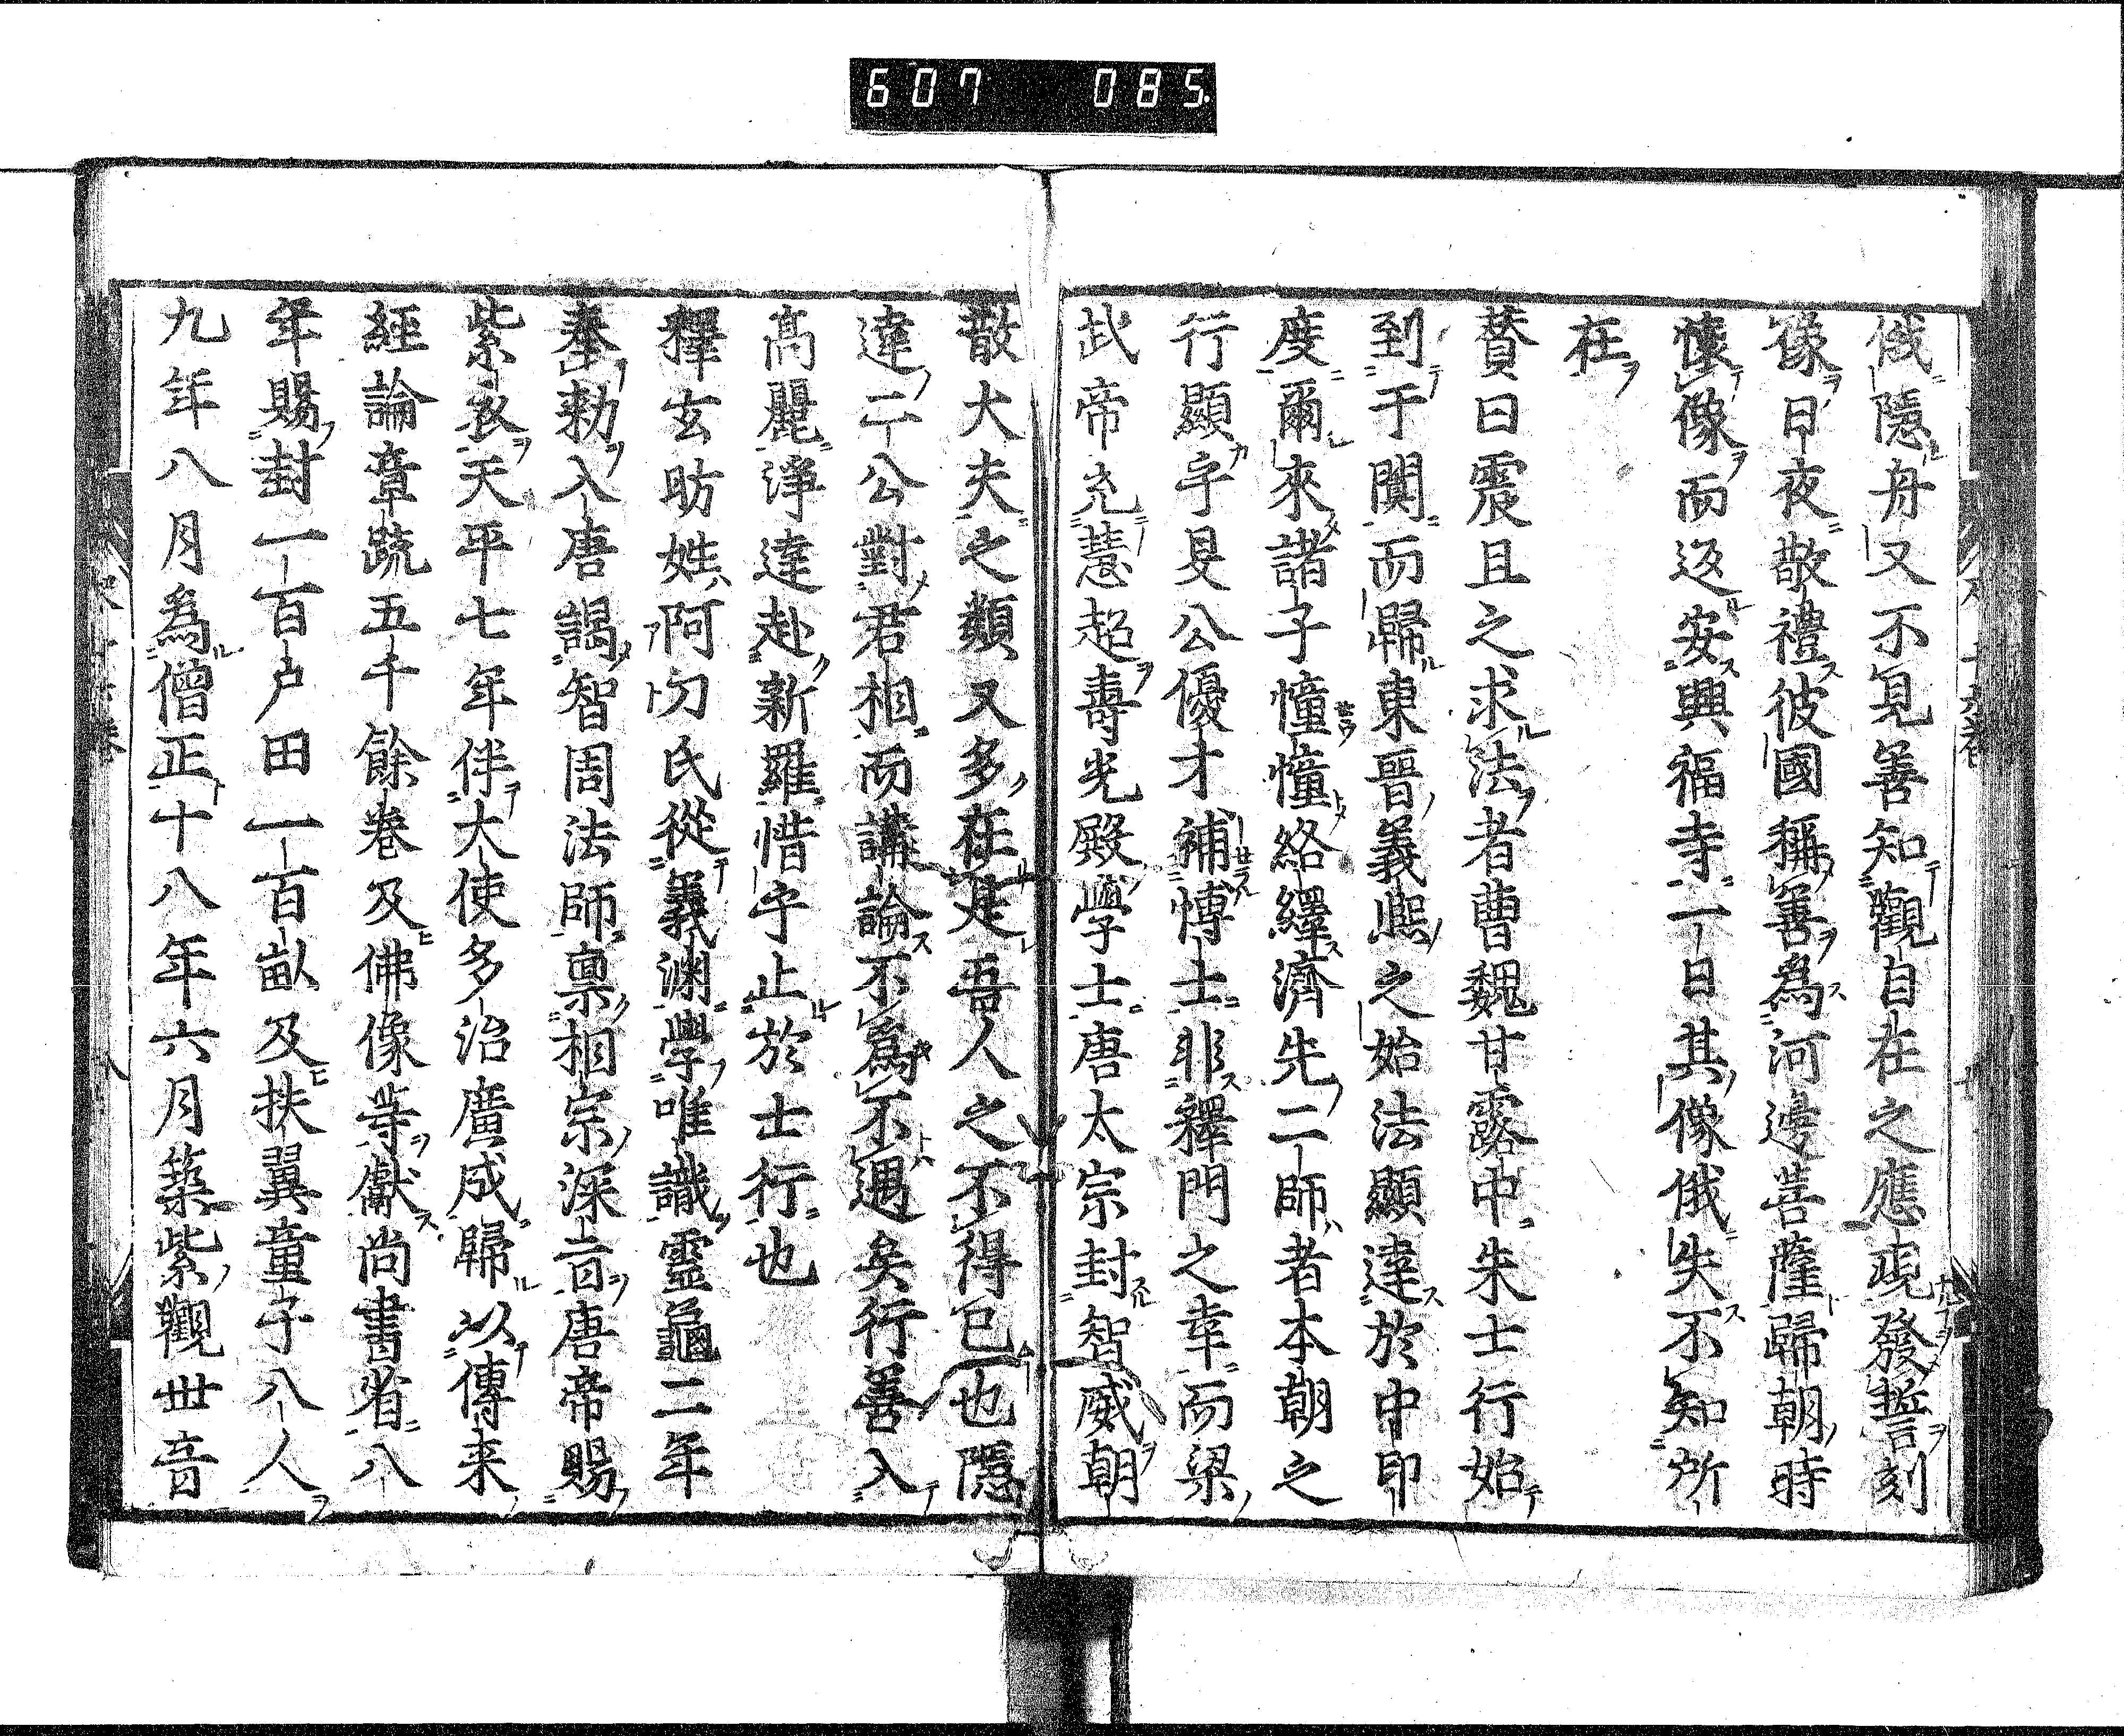 607 085
俄隱舟又不見善知觀自在之應現發誓刻
像日夜敬禮彼國稱善為河邊菩薩歸朝時
懷像而返安興福寺一日其像俄失不知所
在
賛曰震旦之求法者曹魏甘露中朱士行始
到于闐而歸東晉義熙之始法顯達於中印
度爾來諸子憧憧絡繹濟先二師者本朝之
行顯乎旻公優才補愽士非釋門之幸而梁
武帝充慧超壽光殿學士唐太宗封智威朝
散大夫之類又多在是吾人之不得已也隱
達二公對君相而講論不為不遇矣行善入
高麗淨達赴新羅惜乎止於士行也
釋玄昉姓阿刀氏從義淵學唯識靈龜二年
奉勅入唐謁智周法師禀相宗深旨唐帝賜
紫衣天平七年伴大使多治廣成歸以傳来
經論章䟽五千餘卷及佛像等獻尚書省八
年賜封一百戶田一百畝及扶翼童子八人
九年八月為僧正十八年六月築紫觀世音